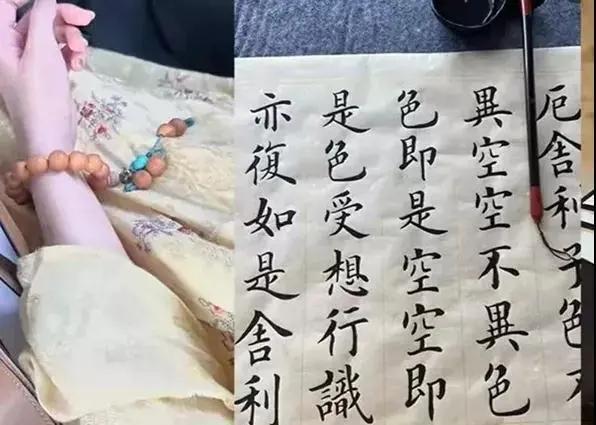 厄舍利子色不
異空空不異色
色即是空空即
是色受想行識
亦復如是舍利